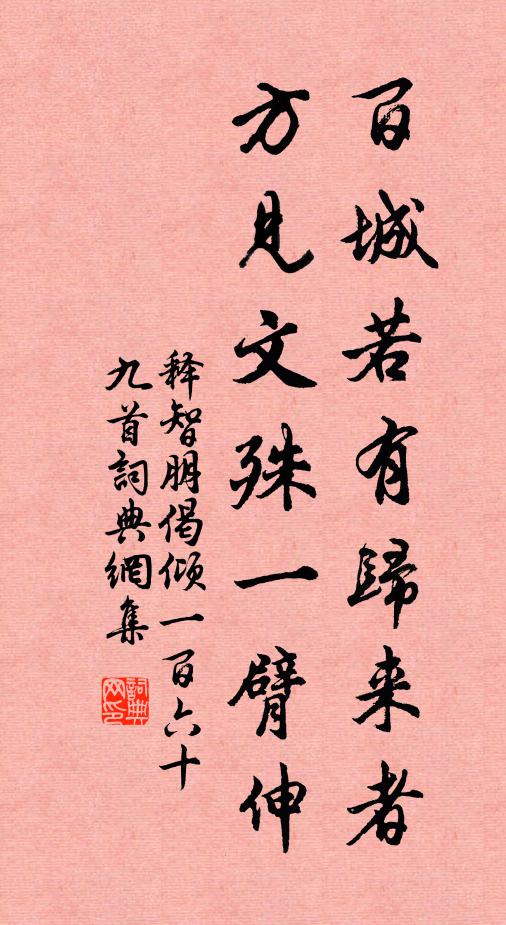 百城若有歸来者
方見文殊一臂伸
释智朋偈倾一百六十
九首詞典網集
詞典网印